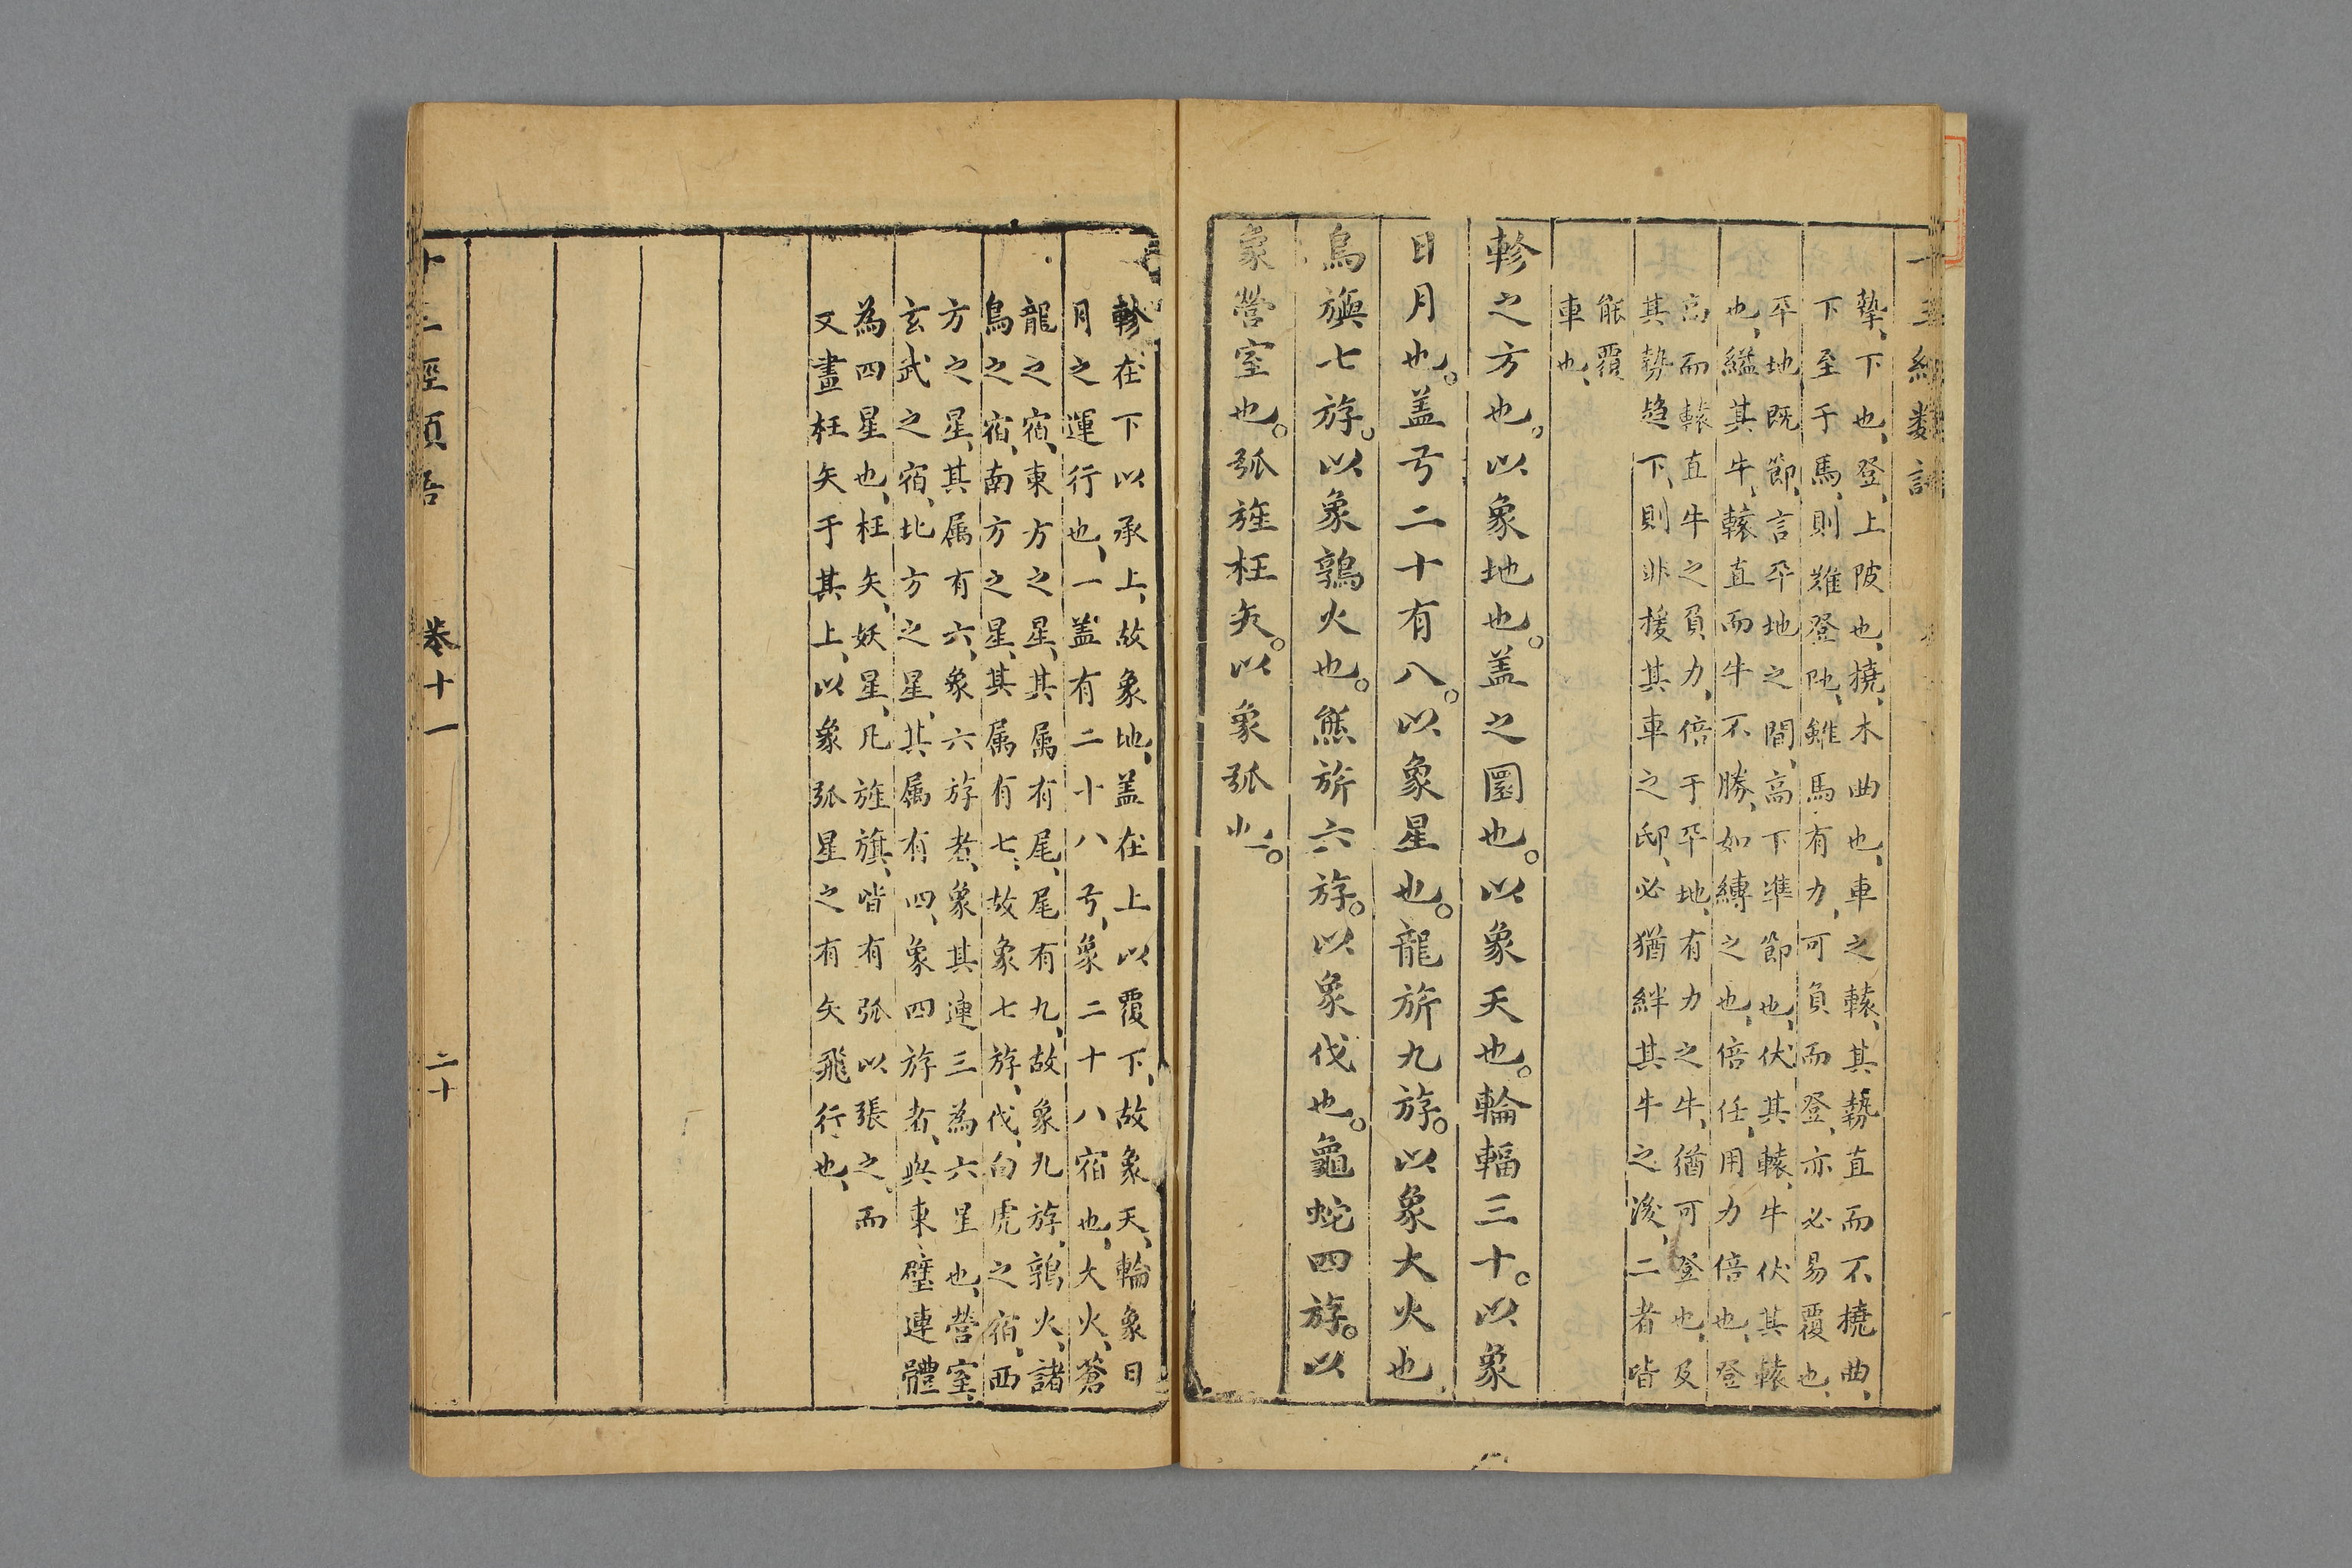 十三經類語
摯、下也、登、上陂也、撓、木曲也、車之轅、其勢直而不撓曲、
下至于馬、則難登阤、雖馬有力、可負而登、亦必易覆也、
平地既節、言平地之間、高下準節也、伏其轅、牛伏其轅
也、縊其牛、轅直而牛不勝、如縳之也、倍任、用力倍也、登
高而轅直牛之負力、倍于平地、有力之牛、猶可登也、及
其勢趋下、則非援其車之邸、必猶絆其牛之後、二者皆
能覆
車也、
軫之方也。以象地也。盖之圜也。以象天也。輪輻三十。以象
日月也。盖弓二十有八。以象星也。龍旂九斿。以象大火也
鳥旟七斿。以象鶉火也。熊旂六斿。以象伐也。龜蛇四斿。以
象營室也。弧旌枉矢。以象弧也。
軫在下以承上、故象地、盖在上以覆下、故象天、輪象日
月之運行也、一盖有二十八弓、象二十八宿也、大火、蒼
龍之宿、東方之星、其属有尾、尾有九、故象九斿、鶉火、諸
鳥之宿、南方之星、其属有七、故象七斿、伐、白虎之宿、西
方之星、其属有六、象六斿者、象其連三為六星也、營室、
玄武之宿、北方之星、其属有四、象四斿者、與東壁連體
為四星也、枉矢、妖星、凡旌旗、皆有弧以張之、而
又畫枉矢于其上、以象弧星之有矢飛行也、
十三經類語 卷十一 二十